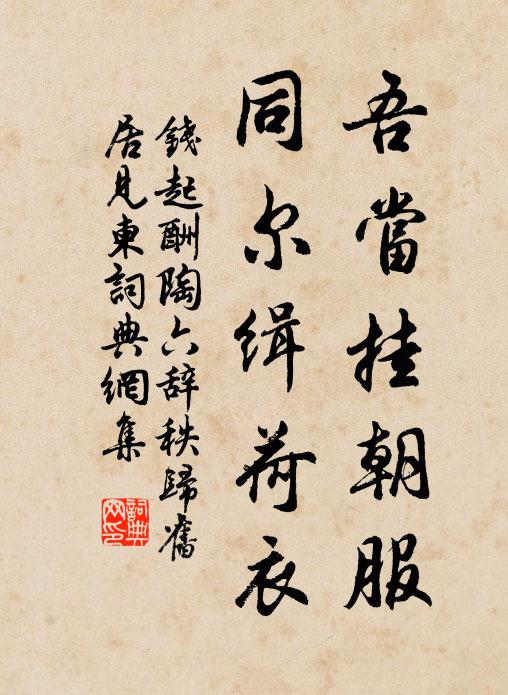 吾當挂朝服
同尔缉荷衣
錢起酬陶六辞秩歸舊
居見東詞典網集
詞典
网印